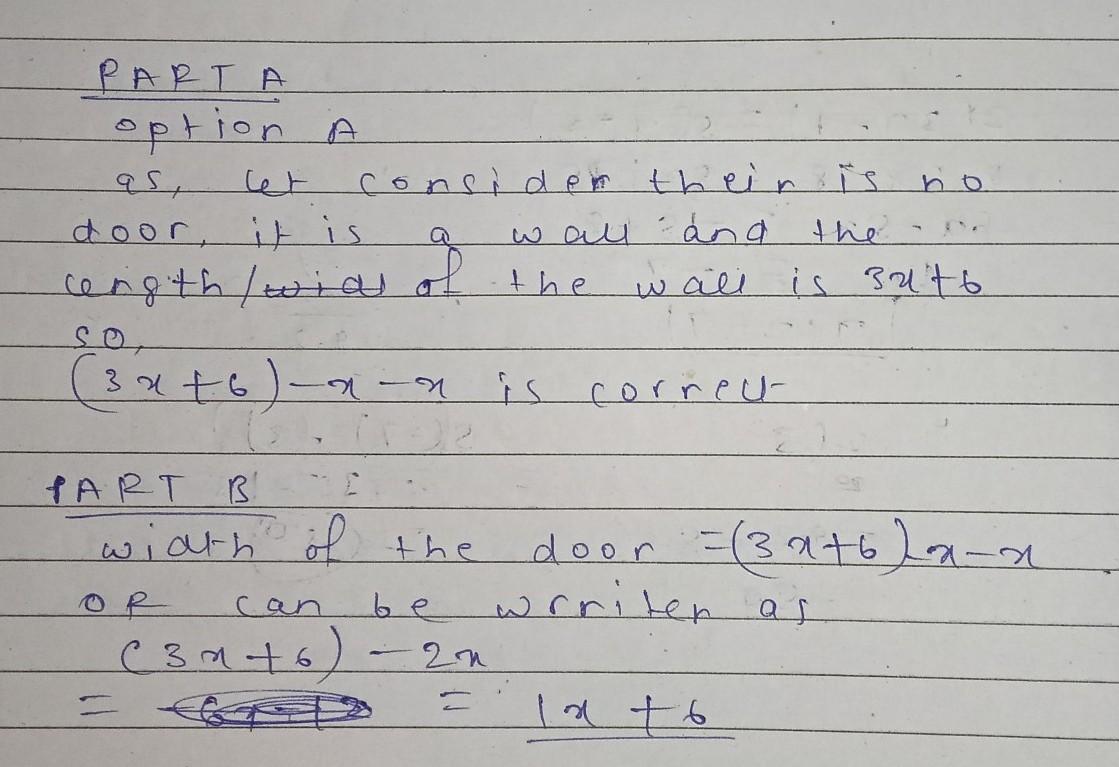 PART A
option A
as, let consider their is no
door, it is a wall and the
length/ of the wall is 3x+6
so,
(3x+6)-x-x is correct
PART B
width of the door =(3x+6)-x-x
OR can be wrriten as
(3x+6)-2x
= = 1x+6